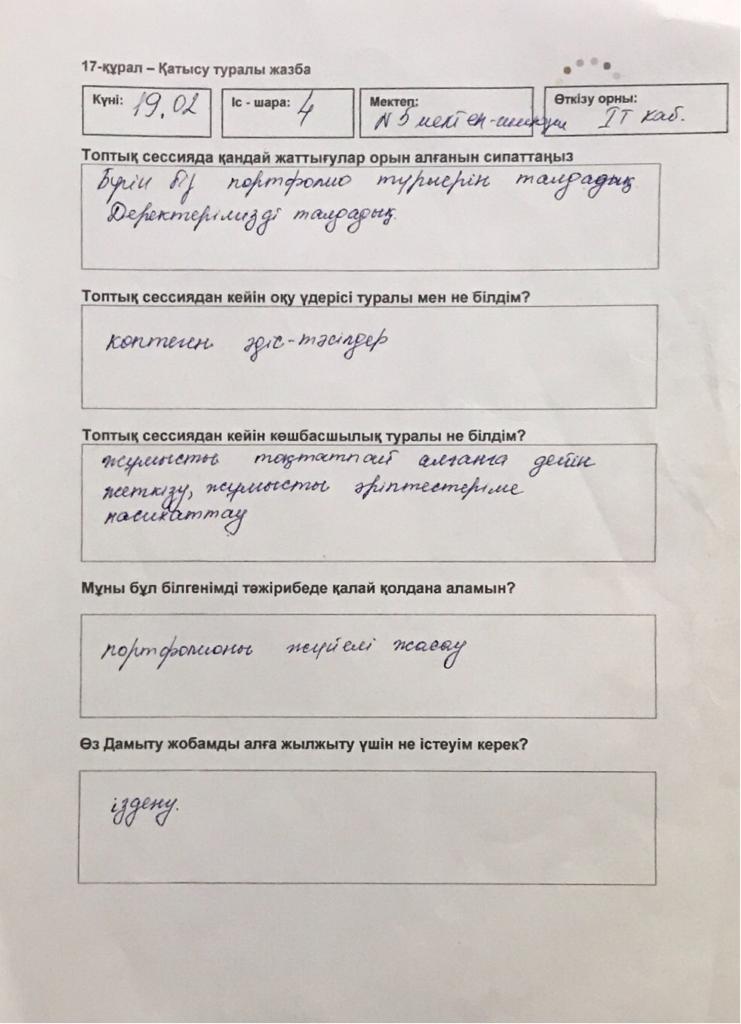 17-құрал – Қатысу туралы жазба
Күні: 19.02 Іс - шара: 4 Мектеп: N5 мектеп-гимназия Өткізу орны: IT каб.
Топтық сессияда қандай жаттығулар орын алғанын сипаттаңыз
Бүгін біз портфолио түрлерін талдадық
Деректерімізді талдадық.
Топтық сессиядан кейін оқу үдерісі туралы мен не білдім?
көптеген әдіс-тәсілдер
Топтық сессиядан кейін көшбасшылық туралы не білдім?
жұмысты тоқтатпай алғанға дейін
жеткізу, жұмысты әріптестеріме
насихаттау
Мұны бұл білгенімді тәжірибеде қалай қолдана аламын?
портфолионы жүйелі жасау
Өз Дамыту жобамды алға жылжыту үшін не істеуім керек?
іздену.